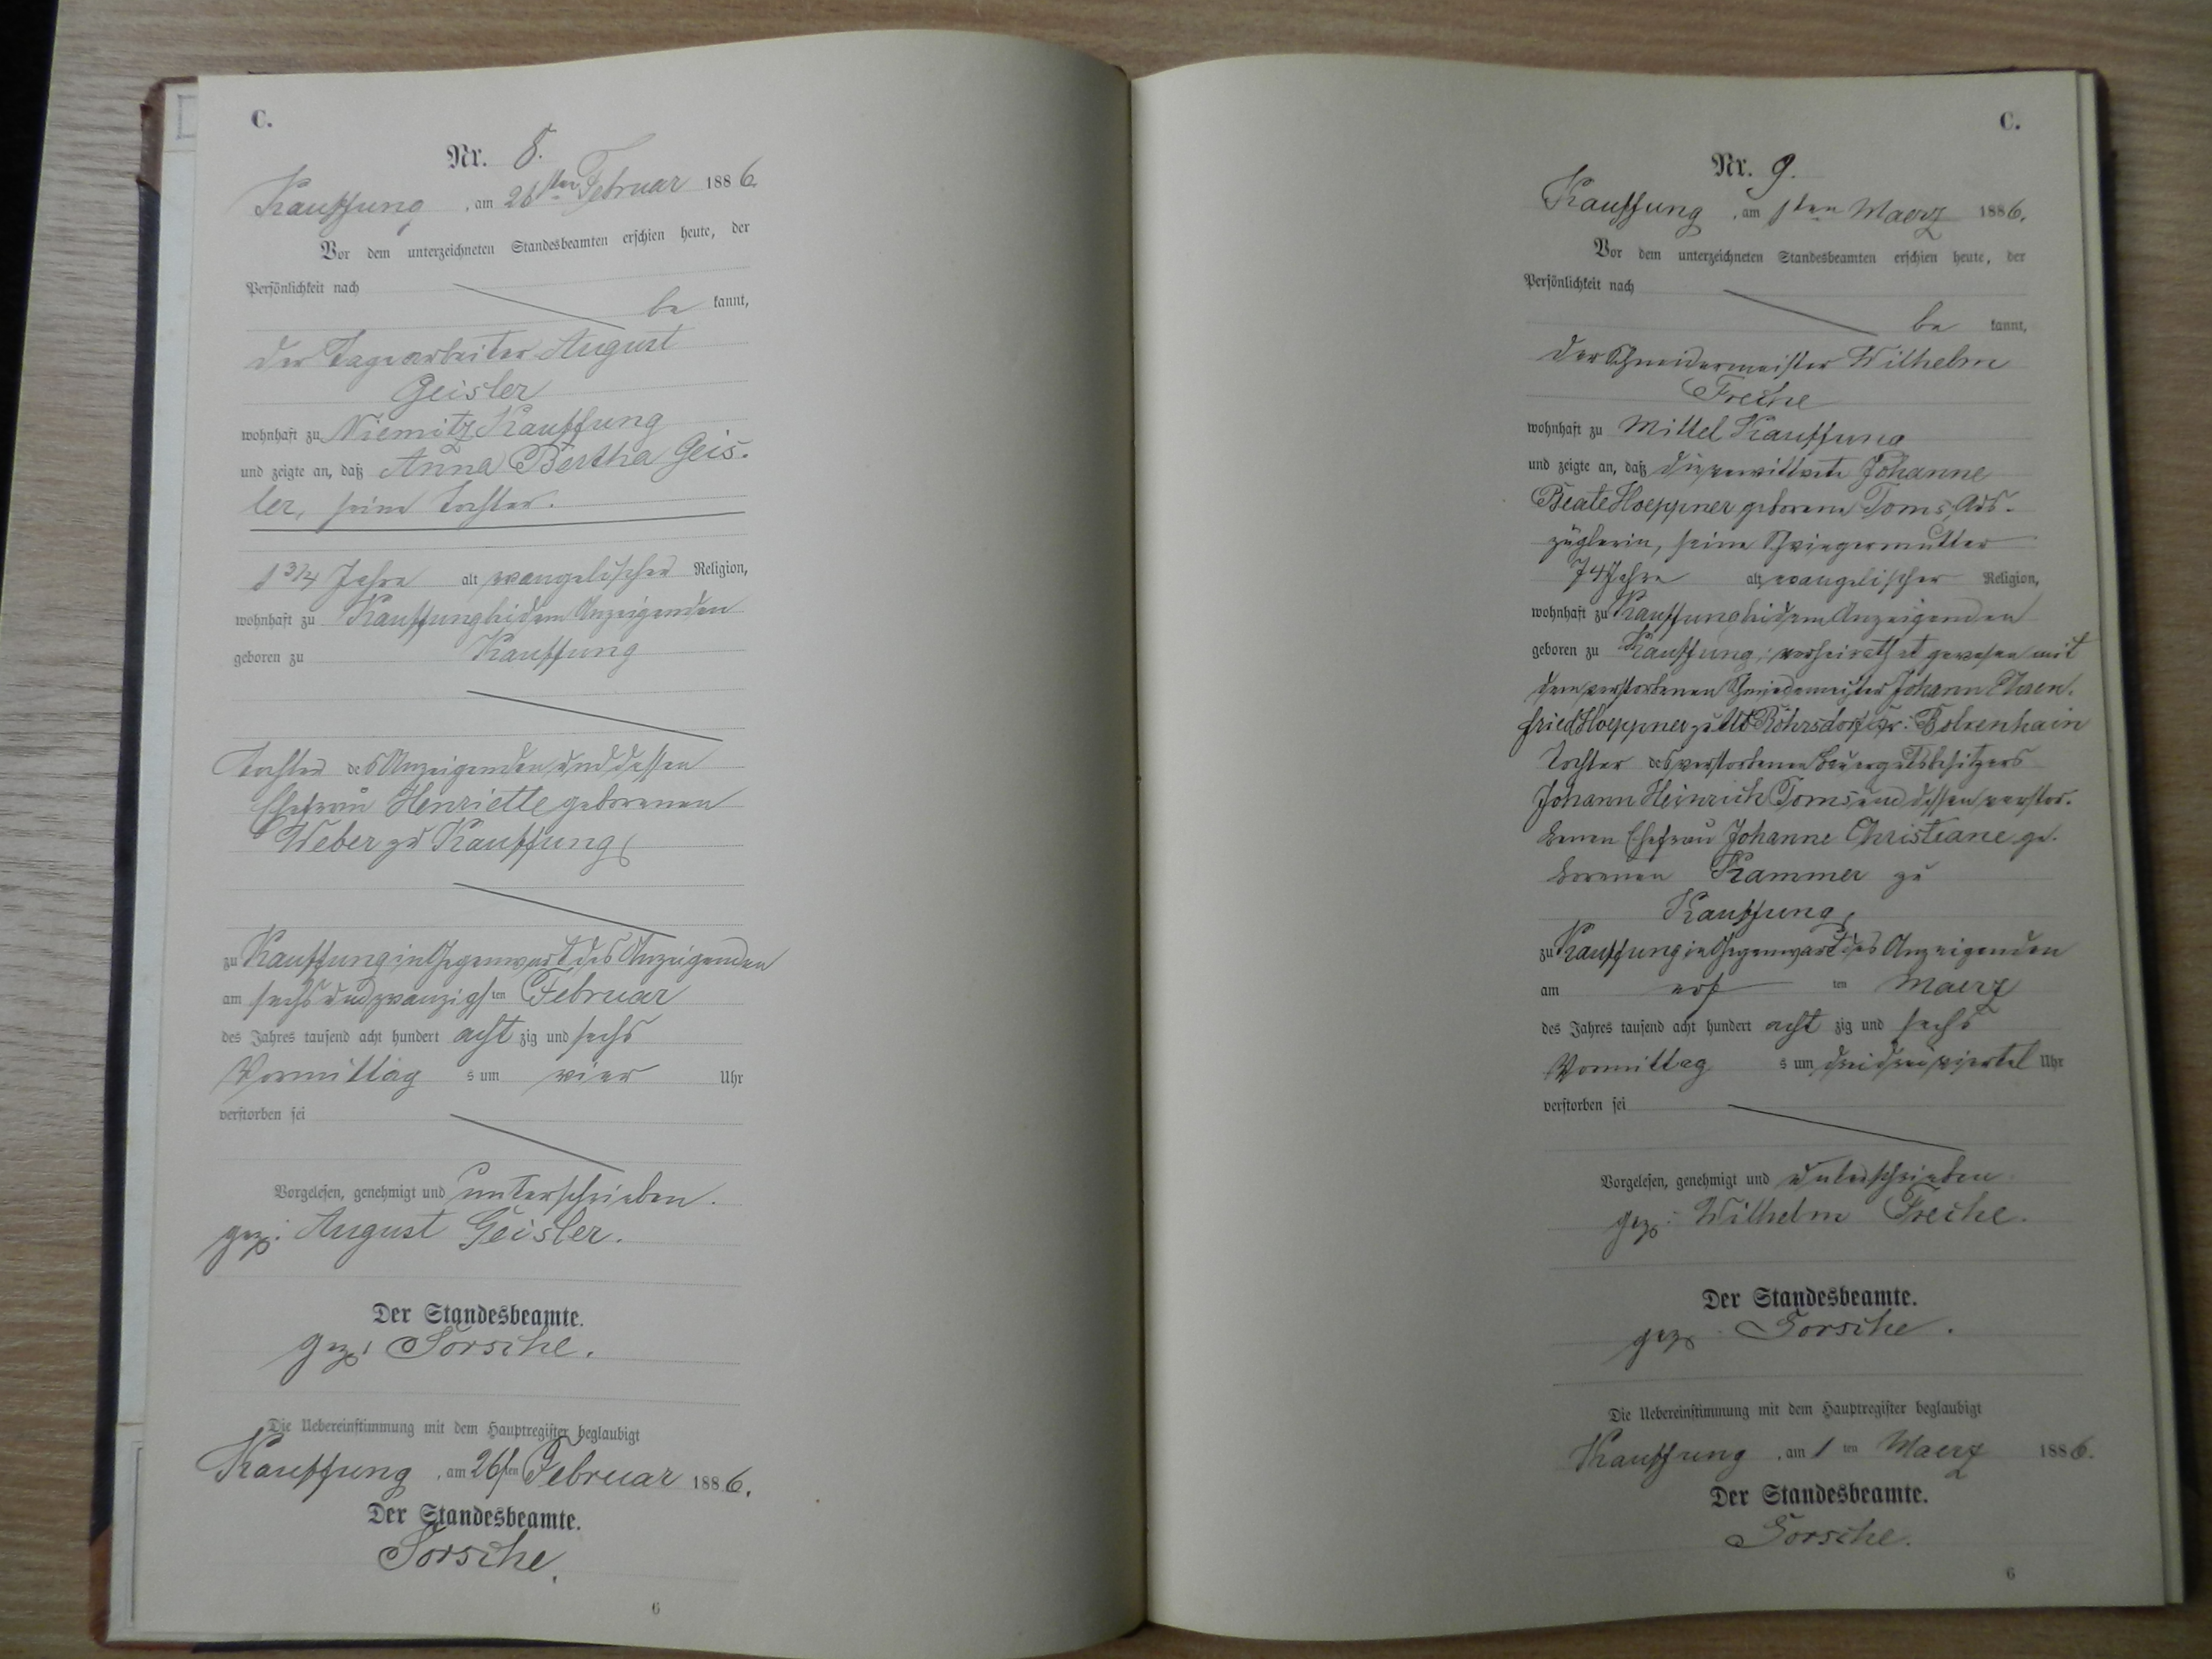 C.
Nr. 8.
Kauffung, am 26sten Februar 1886.
Vor dem unterzeichneten Standesbeamten erschien heute, der
Persönlichkeit nach
be kannt,
der Tagearbeiter August
Geisler
wohnhaft zu Niemitz Kauffung
und zeigte an, daß Anna Bertha Geis-
ler, seine Tochter.
1 3/4 Jahre alt evangelischer Religion,
wohnhaft zu Kauffung bei dem Anzeigenden
geboren zu Kauffung
Tochter des Anzeigenden und dessen
Ehefrau Henriette geborenen
Weber zu Kauffung,
zu Kauffung in Gegenwart des Anzeigenden
am sechs und zwanzigsten Februar
des Jahres tausend acht hundert acht zig und sechs
Vormittag s um vier Uhr
verstorben sei
Vorgelesen, genehmigt und unterschrieben.
gez: August Geisler.
Der Standesbeamte.
gez:
Die Uebereinstimmung mit dem Hauptregister beglaubigt
Kauffung, am 26sten Februar 1886.
Der Standesbeamte.
6
C.
Nr. 9.
Kauffung, am 1ten Maerz 1886.
Vor dem unterzeichneten Standesbeamten erschien heute, der
Persönlichkeit nach
be kannt,
der Schneidermeister Wilhelm
Freche
wohnhaft zu Mittel Kauffung
und zeigte an, daß die verwittwete Johanne
Beate Hoeppner geborene Toms, Aus-
züglerin, seine Schwiegermutter
74 Jahre alt, evangelischer Religion,
wohnhaft zu Kauffung bei dem Anzeigenden
geboren zu Kauffung, verheirathet gewesen mit
dem verstorbenen Schmiedemeister Johann Ehren-
fried Hoeppner zu Alt Röhrsdorf Kr: Bolkenhain
Tochter des verstorbenen Bauergutsbesitzers
Johann Heinrich Toms und dessen verstor-
benen Ehefrau Johanne Christiane ge-
borenen Kammer zu
Kauffung,
zu Kauffung in Gegenwart des Anzeigenden
am ers ten Maerz
des Jahres tausend acht hundert acht zig und sechs
Vormittag s um dreidreiviertel Uhr
verstorben sei
Vorgelesen, genehmigt und unterschrieben
gez: Wilhelm Freche.
Der Standesbeamte.
gez:
Die Uebereinstimmung mit dem Hauptregister beglaubigt
Kauffung, am 1 ten Maerz 1886.
Der Standesbeamte.
6